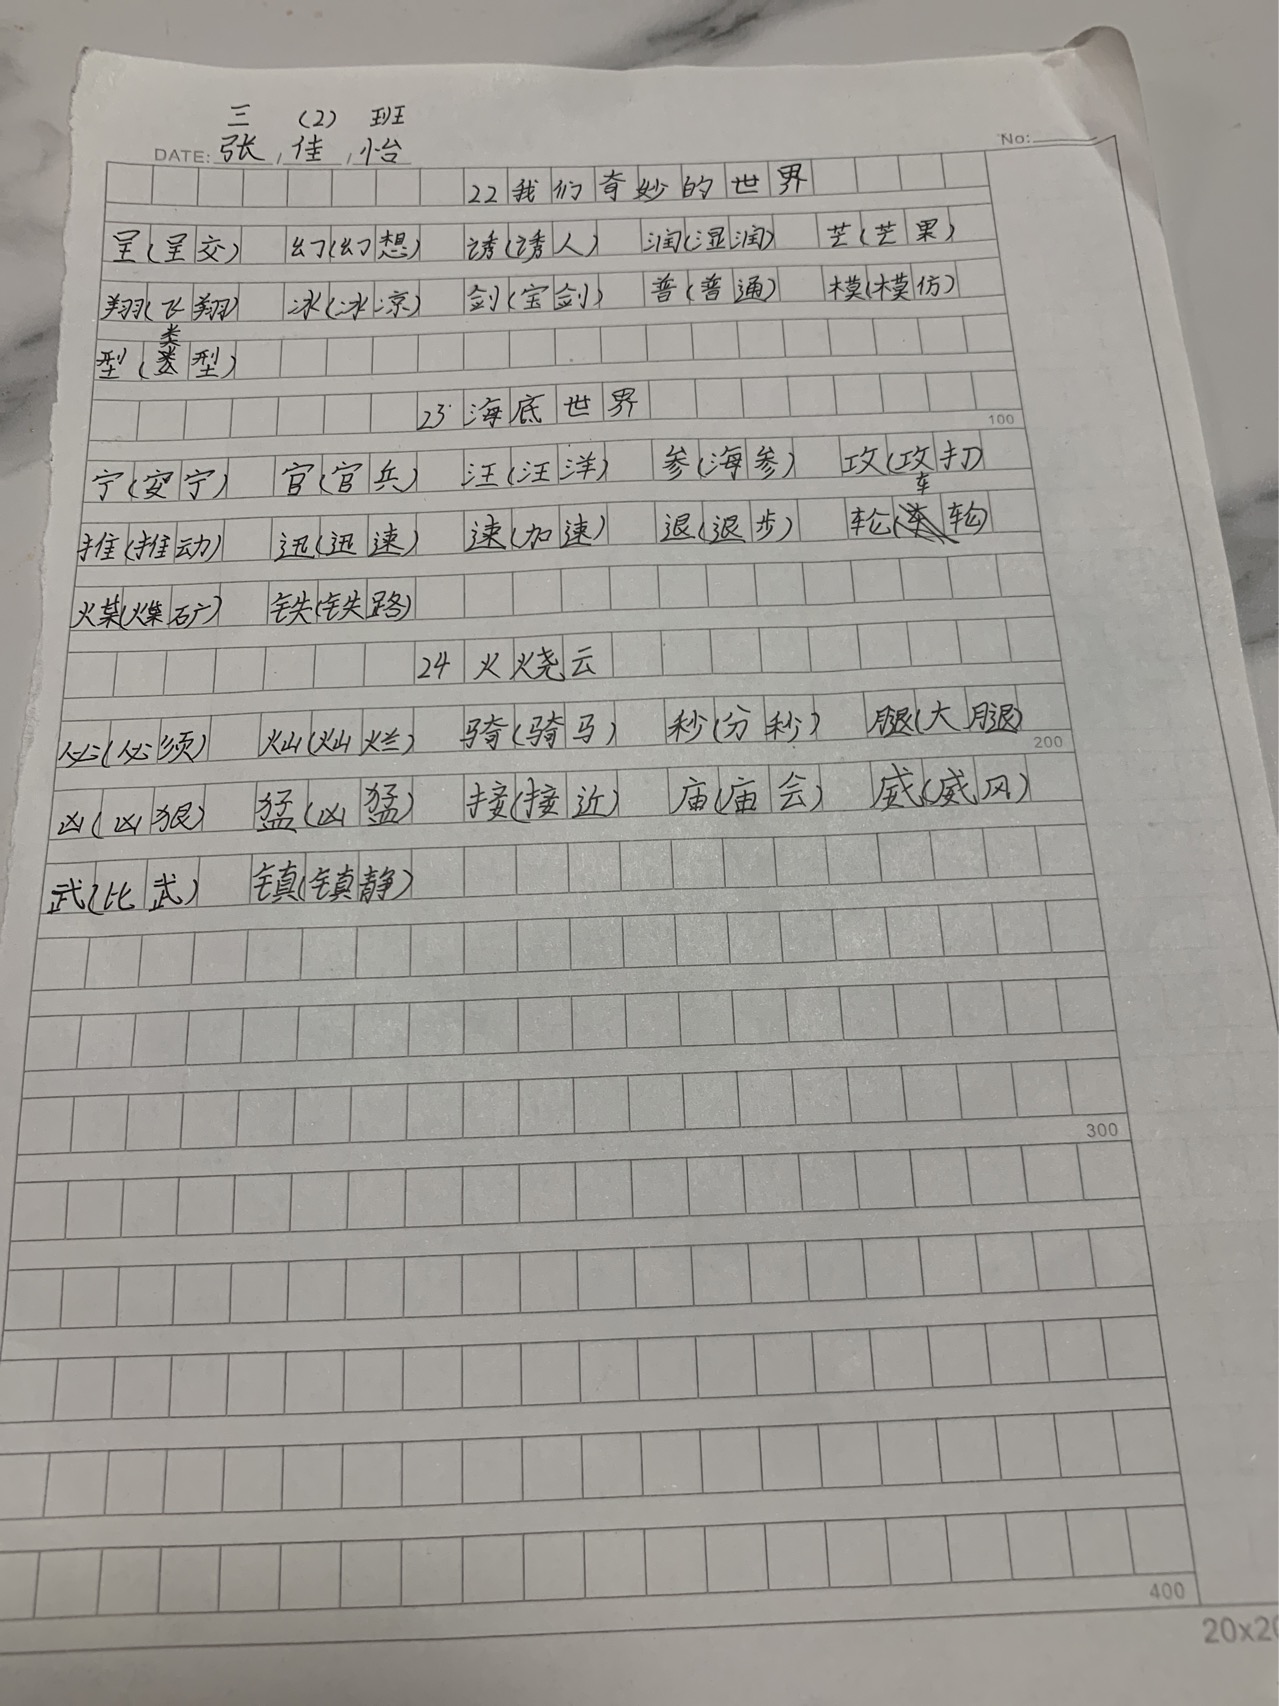 三 (2) 班
DATE: 张,佳,怡 No:
22我们奇妙的世界
呈(呈交) 幻(幻想) 诱(诱人) 润(湿润) 芒(芒果)
翔(飞翔) 冰(冰凉) 剑(宝剑) 普(普通) 模(模仿)
型(类型)
23 海底世界
100
宁(安宁) 官(官兵) 汪(汪洋) 参(海参) 攻(攻打)
推(推动) 迅(迅速) 速(加速) 退(退步) 轮(车轮)
煤(煤矿) 铁(铁路)
24 火烧云
必(必须) 灿(灿烂) 骑(骑马) 秒(分秒) 腿(大腿)
200
凶(凶狠) 猛(凶猛) 接(接近) 庙(庙会) 威(威风)
武(比武) 镇(镇静)
300
400